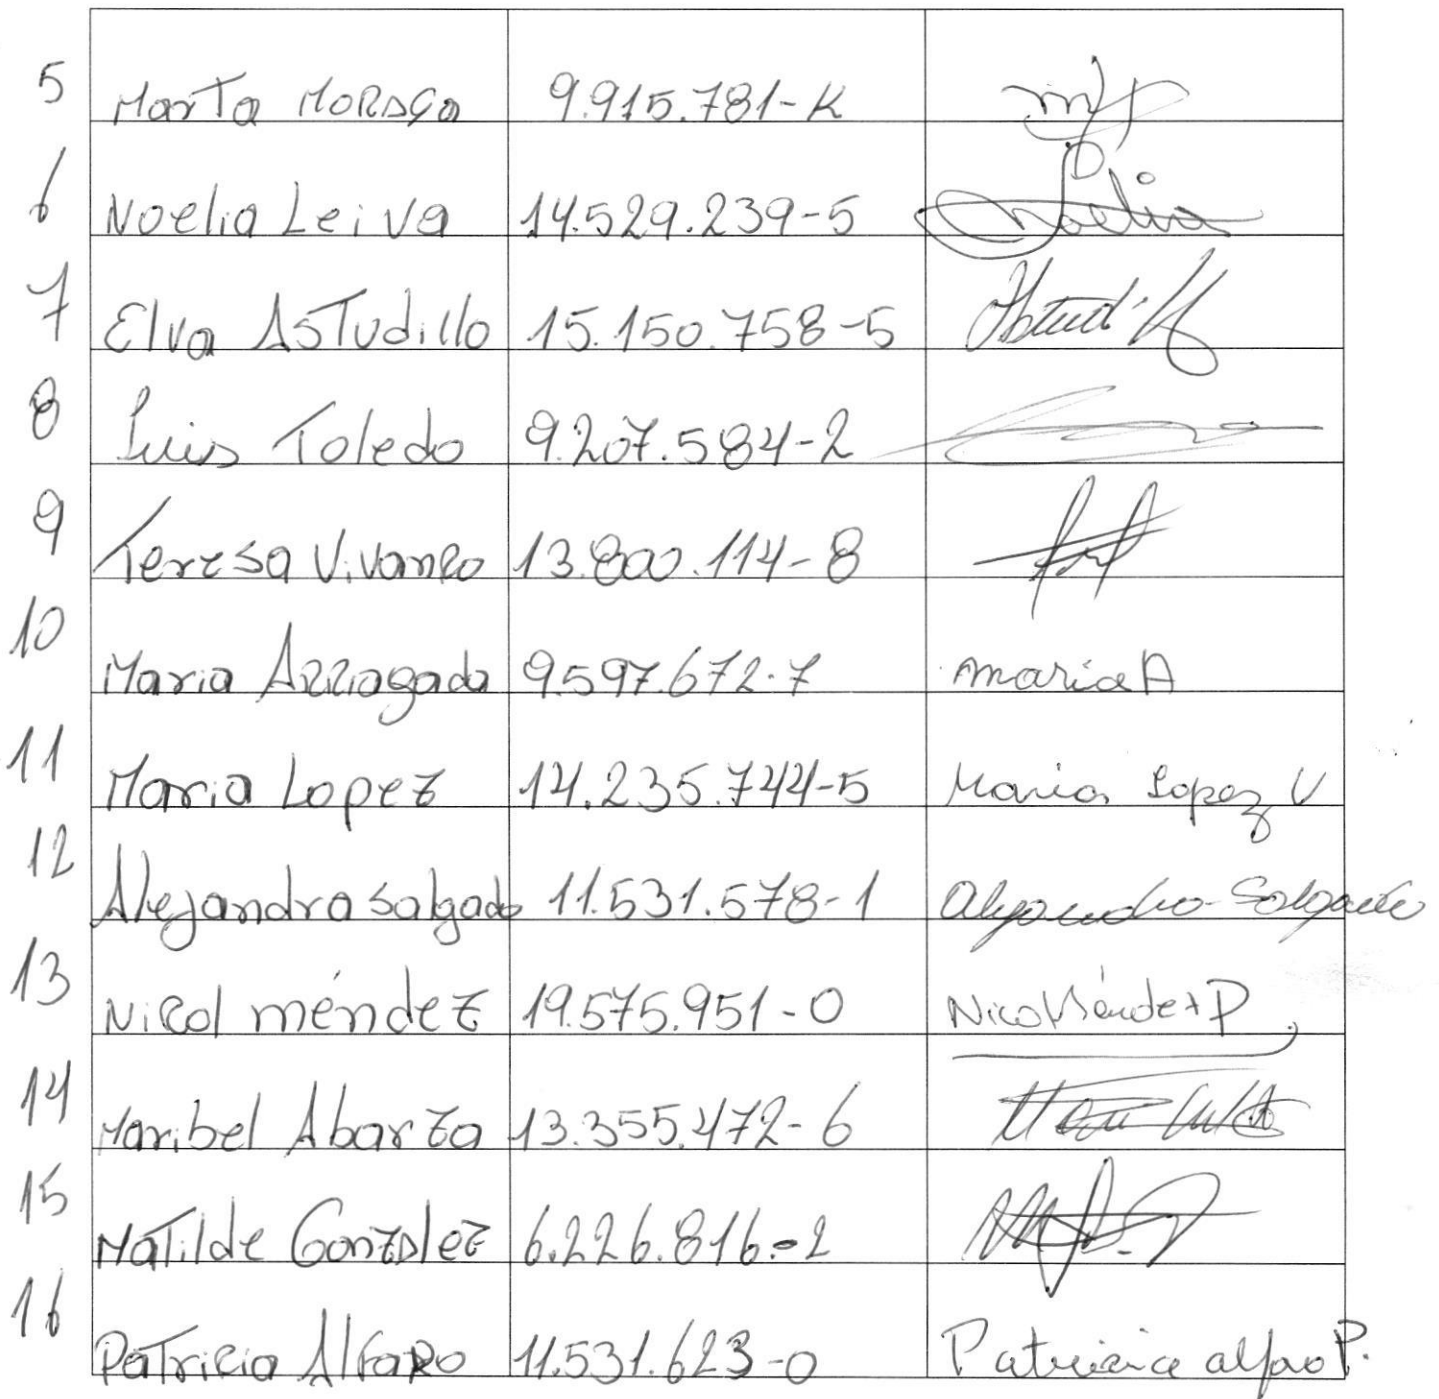 5 Marta Moraga 9.915.781-K
6 Noelia Leiva 14.529.239-5 Noelia
7 Elva Astudillo 15.150.758-5 Astudillo
8 Luis Toledo 9.207.584-2
9 Teresa Vivanco 13.800.114-8
10 Maria Arriagada 9.597.672-7 Maria A
11 Maria Lopez 14.235.744-5 Maria Lopez V
12 Alejandra Salgado 11.531.578-1 Alejandra Salgado
13 Nicol Méndez 19.575.951-0 Nicol Méndez P
14 Maribel Abarza 13.355.472-6
15 Matilde Gonzalez 6.226.816-2
16 Patricia Alfaro 11.531.623-0 Patricia alfaro P.